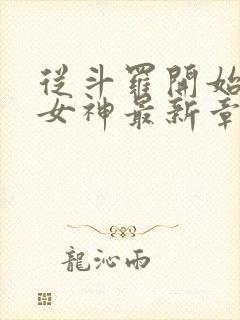 從斗羅開始
女神最新章
龍沁雨